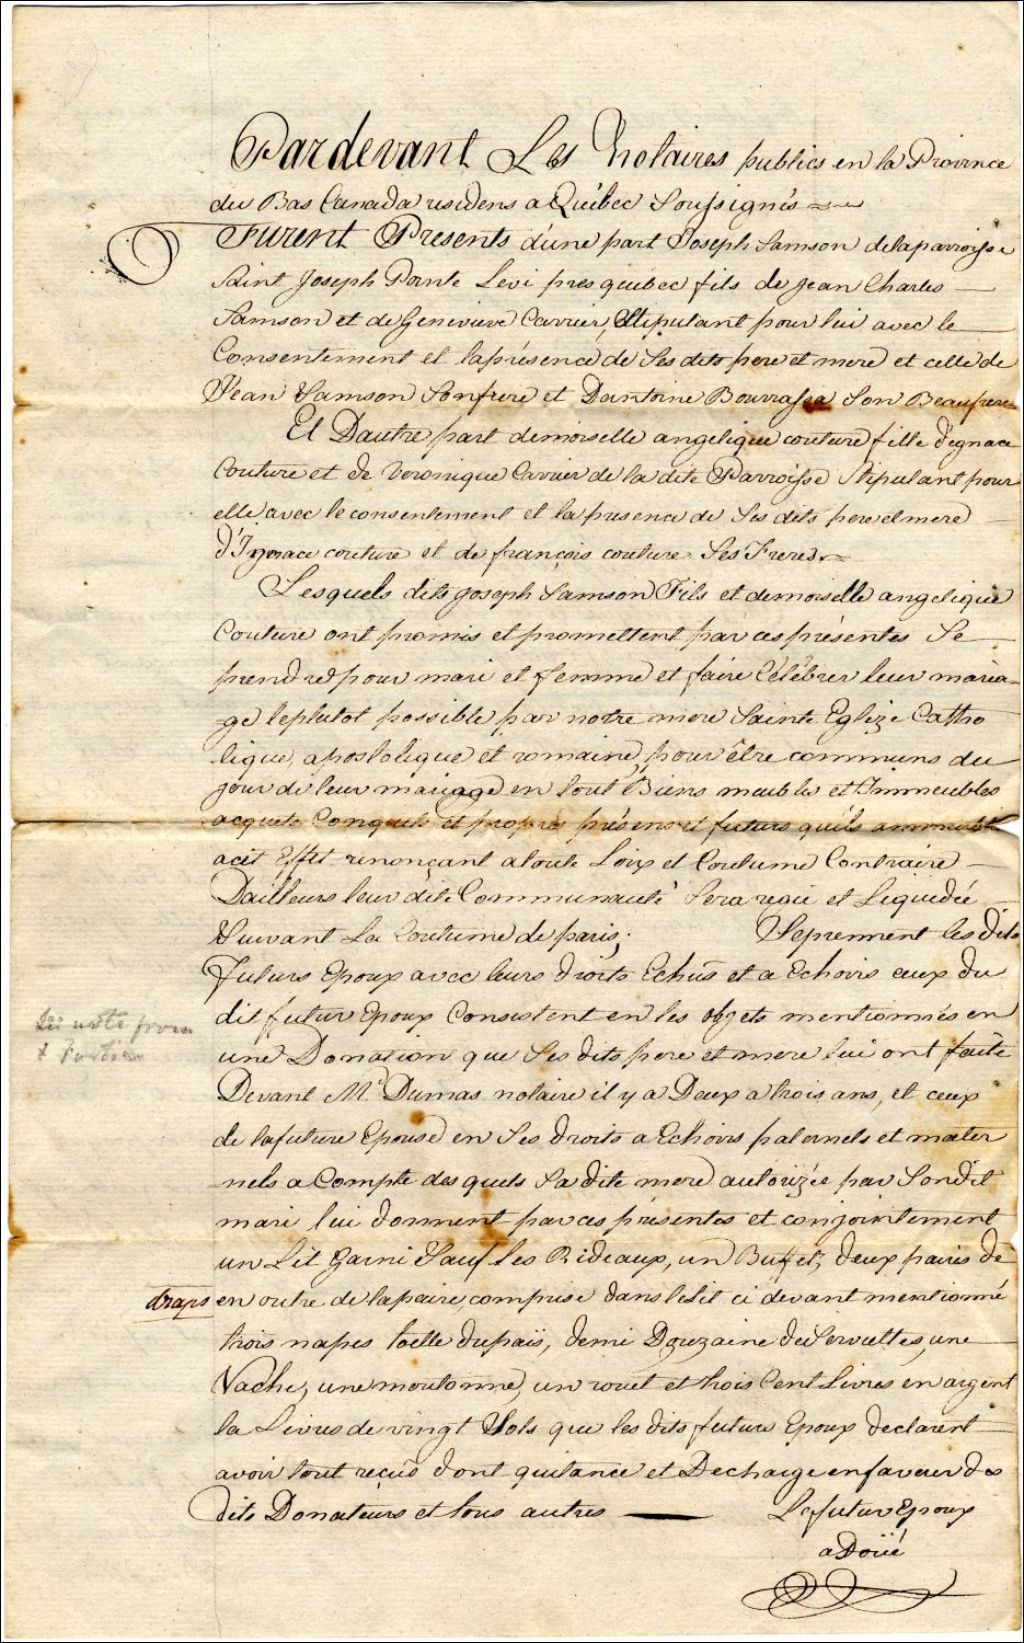 Pardevant Les Notaires publics en la Province
du Bas Canada residens a Québec Soussignés
Furent Presents d'une part Joseph Samson delaparroisse
Saint Joseph Pointe Levi pres quebec fils de Jean Charles
Samson et de Genevieve Carrier, Stipulant pour lui avec le
Consentement et laprésence de Ses dits pere et mere et celle de
Jean Samson Sonfrere et Dantoine Bourrassa Son Beaufrere
Et Dautre part demoiselle angelique couture fille d'egnace
Couture et de Veronique Carrier de la dite Parroisse Stipulant pour
elle avec le consentement et la presence de Ses dits pere et mere
d'Ignace couture et de françois couture Ses Freres.
Lesquels dits joseph Samson Fils et demoiselle angelique
Couture ont promis et promettent par ces présentes Se
prendre pour mari et femme et faire Célébrer leur maria-
-ge leplutot possible par notre mere Sainte Eglize Catho
lique, apostolique et romaine, pour être communs du
jour de leur mariage en tout Biens meubles et Immeubles
acquets Conquets et propres présens et futurs quils
acet Effet renonçant a toute Loix et Coutume Contraire
Dailleurs leur dite Communauté Sera regie et Liquedée
Suivant La Coutume de paris; Seprennent les dits
Futurs Epoux avec leurs droits Echus et a Echoirs ceux du
dit futur Epoux Consistent en les objets mentionnés en
une Donation que Ses dits pere et mere lui ont faite
Devant Mr Dumas notaire il y a Deux a trois ans, et ceux
de lafuture Epouse en Ses droits a Echoirs paternels et mater
nels a Compte des quels Sa dite mere autorizée par Son dit
mari lui donnent par ces présentes et conjointement
un Lit Garni Sauf les Rideaux, un Buffet, deux paires de
draps en outre de lapaire comprise dans leLit ci devant mentionné
trois napes toelle dupaiis, demi Douzaine de Serviettes, une
Vache, une moutonne, un rouet et trois Cent Livres en argent
la Livres de vingt Sols que les dits future Epoux declarent
avoir tout reçus dont quitance et Decharge enfaveur des
dits Donateurs et tous autres Le futur Epoux
a Doüé